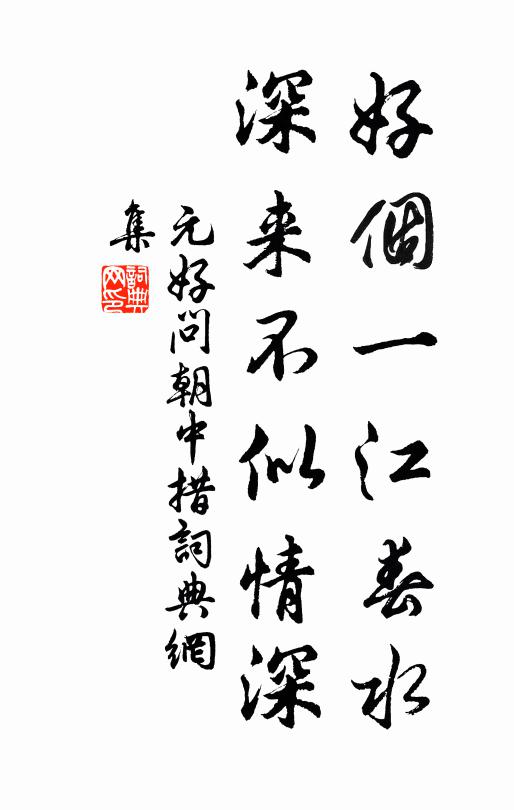 好個一江春水
深来不似情深
元好問朝中措詞典網
集
詞典
网印